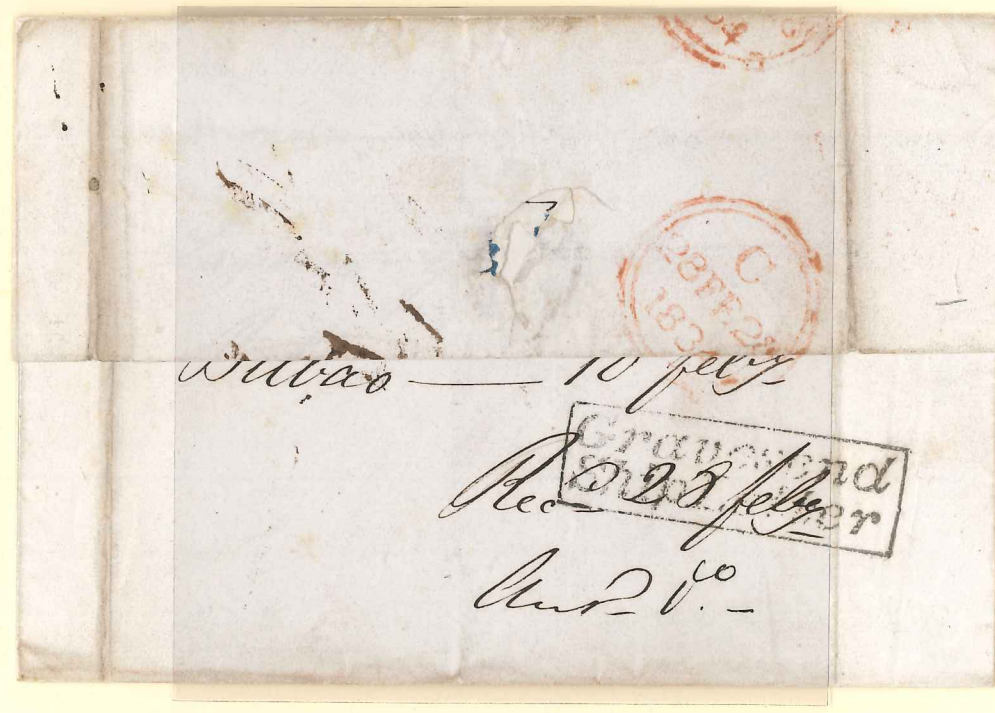 C
28FE28
183
Bilbao — 10 feby
Gravesend
Ship Letter
Recd 28 feby
Ansd do. –